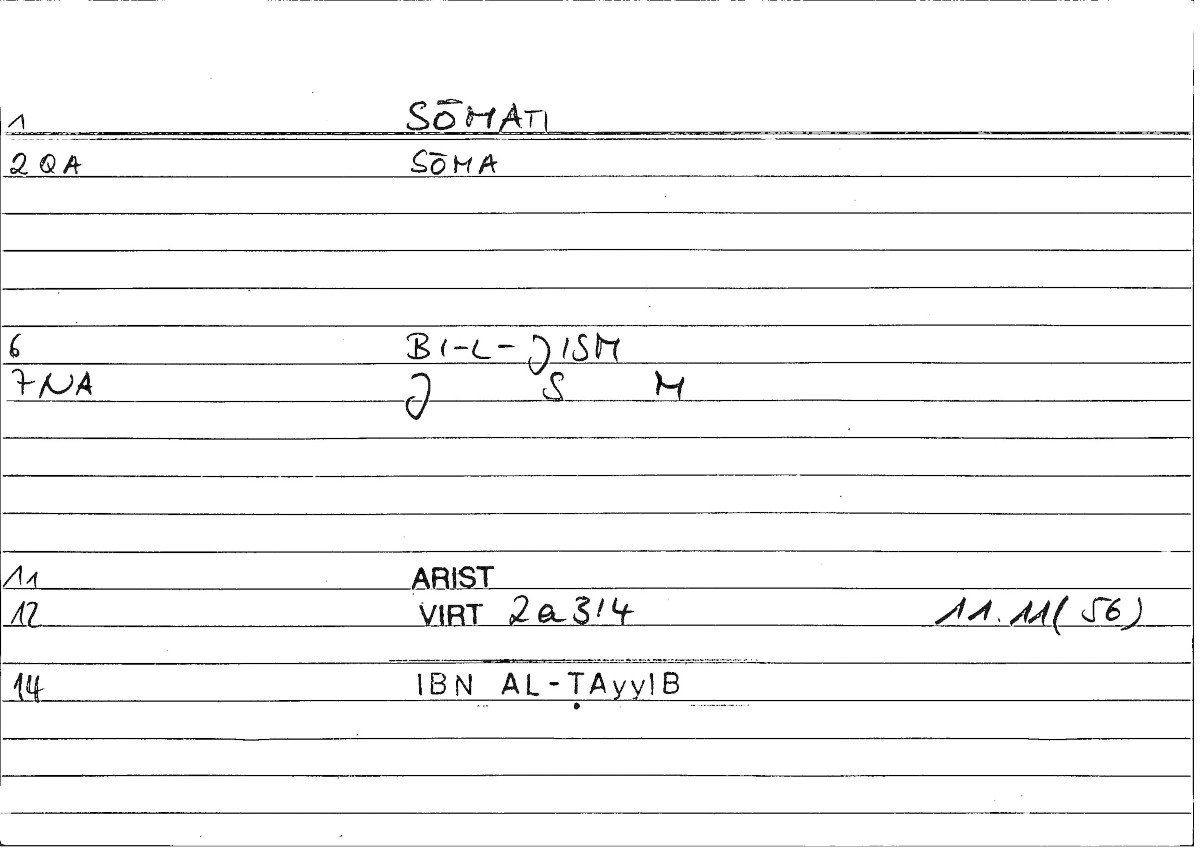 1 SŌMATI
2 QA SŌMA
6 BI-L-JISM
7 NA J S M
11 ARIST
12 VIRT 2a3/4 11.11(56)
14 IBN AL-ṬAyyIB